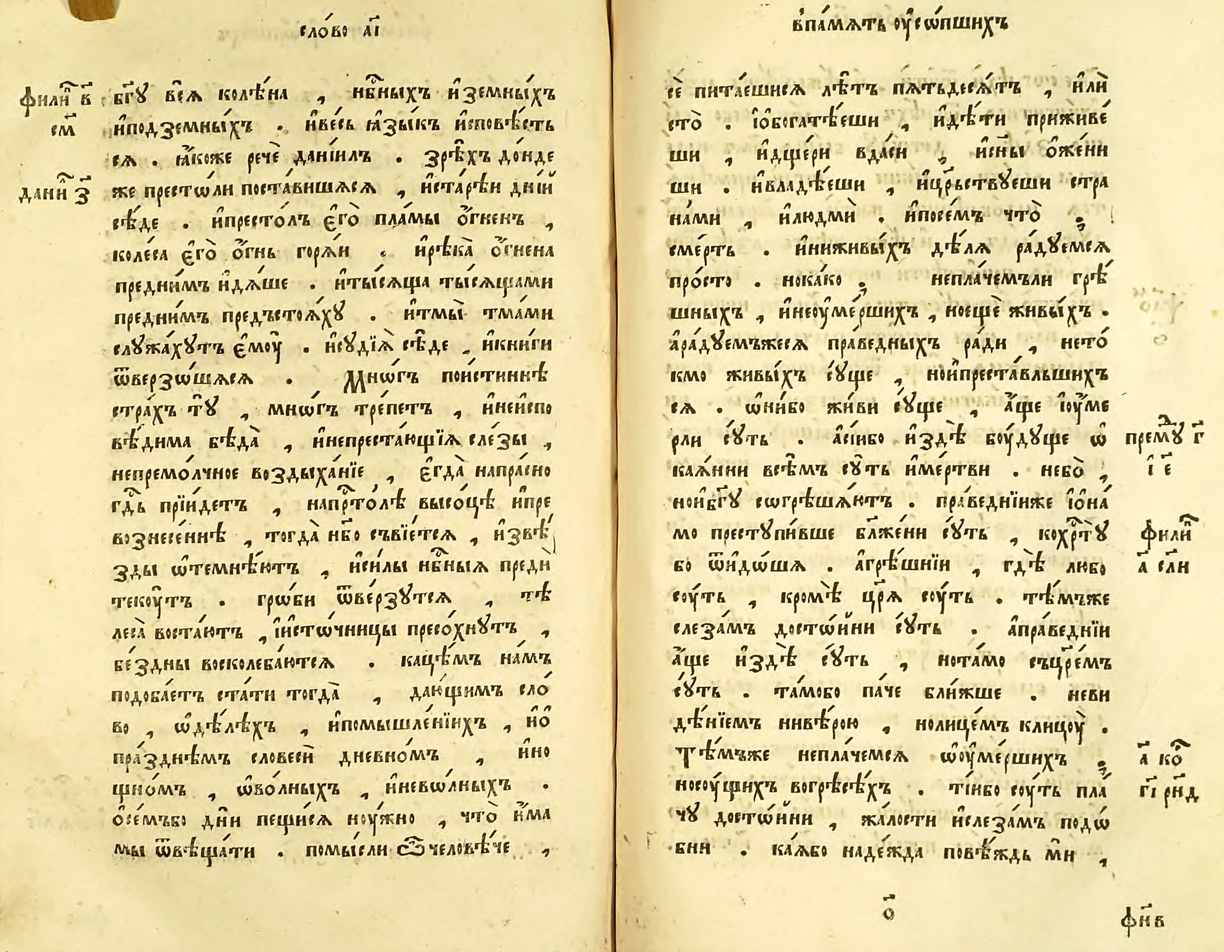 сло́во а҃і
фили҃ в҃
см҃
дани҃ з҃
бг҃ꙋ всѧ колѣ́на , нб҃ныхъ и҆земны́хъ
и҆подземны́хъ . и҆ве́сь ꙗ҆зы́къ и҆сповѣ́сть
сѧ . ꙗ҆́коже речѐ данїи́лъ . зрѣ́хъ до́нде
же престѡ́ли поста́вишасѧ , и҆ста́рѣи дні́й
сѣ́де . и҆престо́лъ є҆гѡ̀ пла́мы о҆́гненъ ,
коле́са є҆гѡ̀ о҆́гнь горѧ́и . и҆рѣка̀ о҆́гнена
преднимъ и҆дѧ́ше . и҆ты́сѧща ты́сѧщами
преднимъ предъстоѧ́хꙋ . и҆тмы̀ тма́ми
слꙋжа́хꙋтъ є҆моу̀ . и҆сꙋдїѧ̀ сѣ́де , и҆кни́ги
ѿверзо́шасѧ . Мно́гъ пои́стиннѣ
стра́хъ тꙋ̀ , мно́гъ тре́петъ , и҆неи҆спо
вѣ́дима бѣда̀ , и҆непреста́ющїѧ сле́зы ,
непремо́лчное воздыха́нїе , є҆гда̀ напра́сно
гдⷭ҇ь прїи́детъ , напрⷭ҇то́лѣ высо́цѣ и҆пре
вознесе́ннѣ , тогда̀ нб҃о съвїе́тсѧ , и҆звѣ́
зды ѡ҆темнѣ́ютъ , и҆си́лы нбⷭ҇ныѧ преди
текоу́тъ . гро́би ѿверзꙋ́тсѧ , тѣ
леса̀ воста́ютъ , и҆и҆сто́чницы пресо́хнꙋтъ ,
бе́здны восколеба́ютсѧ . каце́мъ на́мъ
подоба́етъ ста́ти тогда̀ , даю́щимъ сло́
во , ѡ҆дѣ́лѣхъ , и҆помышле́нїихъ , и҆ѡ҆
пра́зднѣмъ словесѝ дневно́мъ , и҆но
щно́мъ , ѡ҆во́лныхъ , и҆нево́лныхъ .
о҆се́мъбо дні́и пещи́сѧ ноу́жно , что̀ и҆́ма
мы ѿвѣща́ти . помы́сли ѽ человѣ́че ,
впа́мѧть оу҆со́пшихъ
сѐ пита́ешисѧ лѣ́тъ пѧтьдесѧ́тъ , и҆лѝ
сто̀ . і҆ѡ҆богатѣ́еши , и҆дѣ́ти приживе́
ши , и҆дще́ри вда́си , и҆сн҃ы ѡ҆жени́
ши . и҆владѣ́еши , и҆цр҃ьствꙋеши стра
на́ми , и҆людмѝ . и҆посе́мъ что̀ ;
сме́рть . и҆ниживы́хъ дѣ́лѧ ра́дꙋемсѧ
про́сто . нока́ко ; непла́чемъли грѣ́
шныхъ , и҆неоу҆ме́ршихъ , ноещѐ живы́хъ .
а҆ра́дꙋемъжесѧ пра́ведныхъ ра́ди , нето́
кмо живы́хъ сꙋ́ще , нои҆преста́вльшихъ
сѧ . ѡ҆ни́бо жи́ви сꙋ́ще , а҆́ще і҆оу҆ме
рли сꙋ́ть . а҆сі́ибо и҆здѣ̀ боу́дꙋще ѡ҆
каѧ́нни всѣ́мъ сꙋ́ть и҆ме́ртви . небо̀ ,
нои҆бг҃ꙋ согрѣша́ютъ . пра́веднїиже і҆ѡ҆на́
мо престꙋпи́вше бл҃же́ни сꙋ́ть , кохрⷭ҇тꙋ̀
бо ѿидо́ша . а҆грѣ́шнїи , гдѣ̀ лю́бо
соу́ть , кромѣ̀ цр҃ѧ̀ соу́ть . тѣ́мъже
слеза́мъ досто́йни сꙋ́ть . а҆пра́веднїи
а҆́ще и҆здѣ̀ сꙋ́ть , нота́мо съцр҃е́мъ
сꙋ́ть . та́мобо па́че бли́жше . неви
дѣ́нїемъ нивѣ́рою , нолице́мъ клицоу̀ .
Тѣ́мъже непла́чемсѧ ѡ҆оу҆ме́ршихъ ;
носоу́щихъ вогрѣсѣ́хъ . ті́ибо соу́ть пла
чꙋ̀ досто́йни , жа́лости и҆слеза́мъ подо́
бни . ка́ѧбо наде́жда повѣ́ждь мѝ ,
премⷣꙋ г҃
і҃ е҃
фили҃
а҃ сли
а҃ ко҃
г҃і рн҃д
о҃
фн҃в